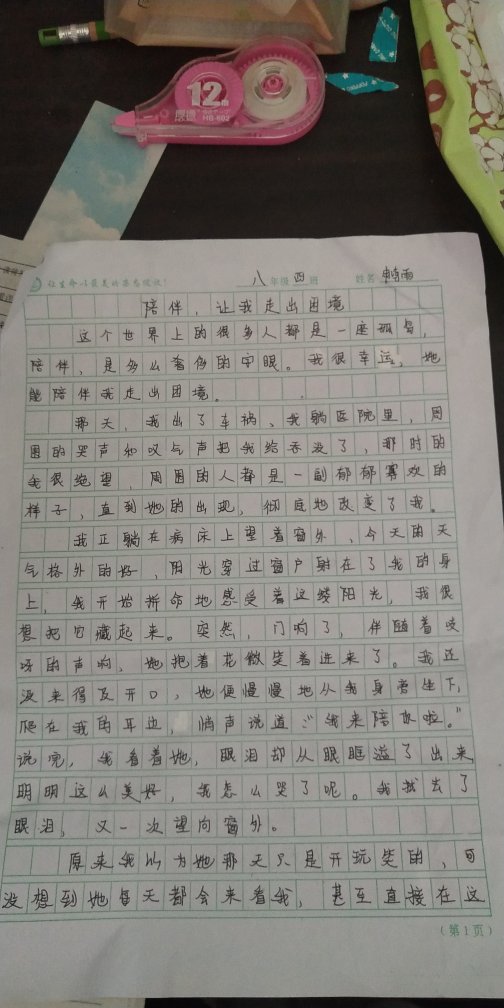 12m
HS-602
让生命以最美的姿态绽放！
八年级四班 姓名
陪伴，让我走出困境
这个世界上的很多人都是一座孤岛，
陪伴，是多么奢侈的字眼。我很幸运，她
能陪伴我走出困境。
那天，我出了车祸，我躺医院里，周
围的哭声和叹气声把我给吞没了，那时的
我很绝望，周围的人都是一副郁郁寡欢的
样子，直到她的出现，彻底地改变了我。
我正躺在病床上望着窗外，今天的天
气格外的好，阳光穿过窗户射在了我的身
上，我开始拼命地感受着这缕阳光，我很
想把它藏起来。突然，门响了，伴随着吱
呀的声响，她抱着花微笑着进来了。我还
没来得及开口，她便慢慢地从我身旁坐下，
爬在我的耳边，悄声说道：“我来陪你啦。”
说完，我看着她，眼泪却从眼眶溢了出来
明明这么美好，我怎么哭了呢。我拭去了
眼泪，又一次望向窗外。
原来我以为她那天只是开玩笑的，可
没想到她每天都会来看我，甚至直接在这
（第1页）